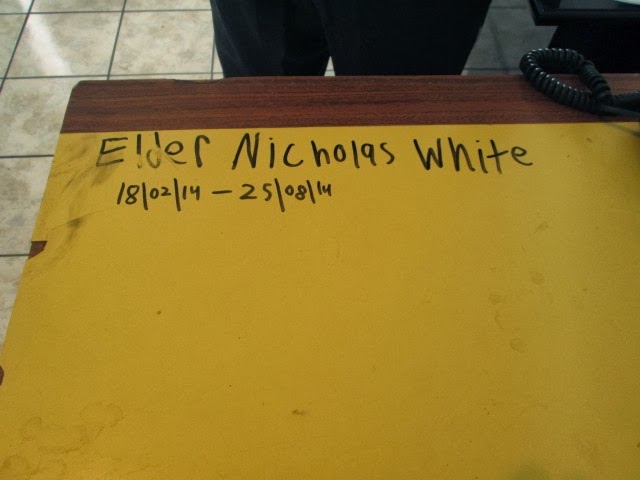 Elder Nicholas White
18/02/14 - 25/08/14